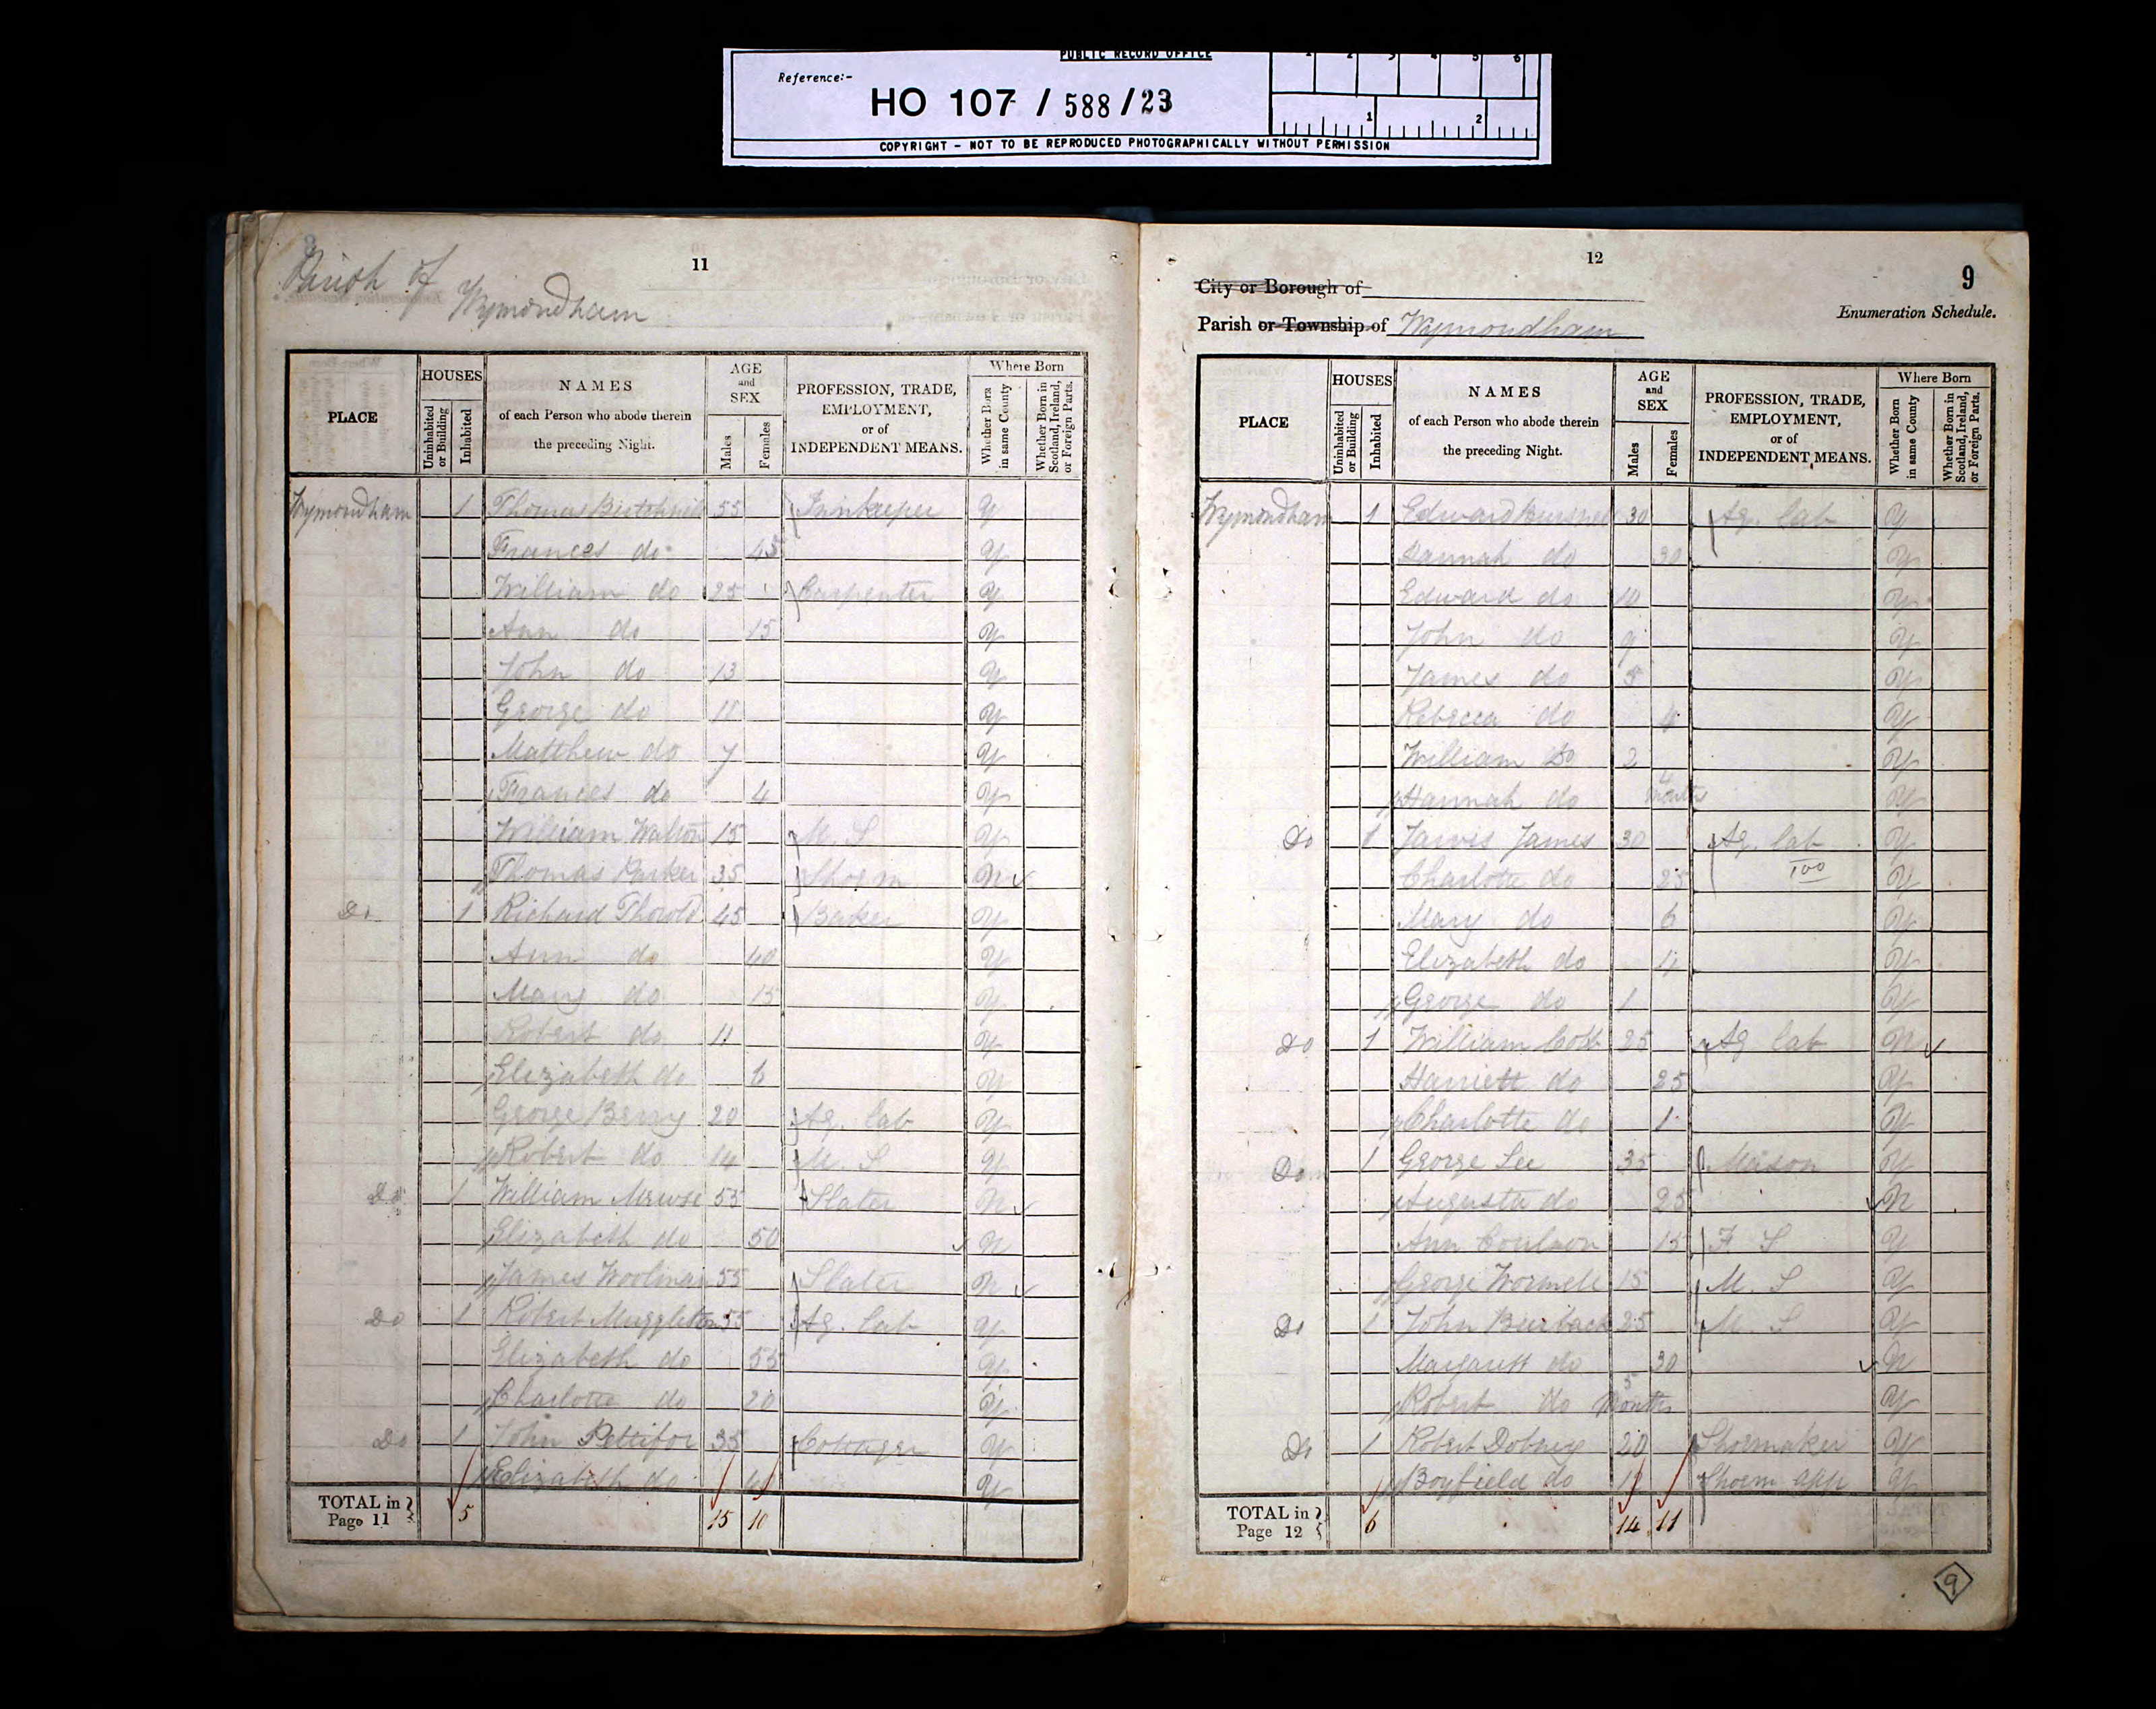 PUBLIC RECORD OFFICE
Reference:-
HO 107 / 588 / 23
1 2 3 4 5 6
1 2
COPYRIGHT - NOT TO BE REPRODUCED PHOTOGRAPHICALLY WITHOUT PERMISSION
8
11
Parish of
Wymondham
PLACE
HOUSES
Uninhabited or Building
Inhabited
NAMES
of each Person who abode therein
the preceding Night.
AGE and SEX
Males
Females
PROFESSION, TRADE,
EMPLOYMENT,
or of
INDEPENDENT MEANS.
Where Born
Whether Born in same County
Whether Born in Scotland, Ireland, or Foreign Parts.
Wymondham 1 Thomas 55 Innkeeper Y
Frances do 45 Y
William do 25 Carpenter Y
Ann do 15 Y
John do 13 Y
George do 11 Y
Matthew do 7 Y
Frances do 4 Y
William Walton 15 M. S Y
Thomas Parker 35 Shoem N
Do 1 Richard Thorold 45 Baker Y
Ann do 40 Y
Mary do 15 Y
Robert do 11 Y
Elizabeth do 6 Y
George Berry 20 Ag. Lab Y
Robert do 14 M. S Y
Do 1 William 55 Slater N
Elizabeth do 50 N
James Woolman 55 Slater N
Do 1 Robert Muggleton 55 Ag. Lab Y
Elizabeth do 55 Y
Charlotte do 20 Y
Do 1 John Pettifor 35 Cottager Y
Elizabeth do Y
TOTAL in Page 11 5 15 10
12
9
City or Borough of
Enumeration Schedule.
Parish or Township of Wymondham
PLACE
HOUSES
Uninhabited or Building
Inhabited
NAMES
of each Person who abode therein
the preceding Night.
AGE and SEX
Males
Females
PROFESSION, TRADE,
EMPLOYMENT,
or of
INDEPENDENT MEANS.
Where Born
Whether Born in same County
Whether Born in Scotland, Ireland, or Foreign Parts.
Wymondham 1 Edward 30 Ag. Lab Y
Hannah do 30 Y
Edward do 10 Y
John do 9 Y
James do 5 Y
Rebecca do 4 Y
William Do 2 Y
Hannah do 4 months Y
Do 1 Jarvis James 30 Ag. Lab Y
Charlotte do 25 Y
Mary do 6 Y
Elizabeth do 4 Y
George do 1 Y
Do 1 William Cobb 25 Ag Lab N
Harriett do 25 Y
Charlotte do 1 Y
Do 1 George Lee 35 Mason Y
Augusta do 25 N
Ann Coulson 15 F. S Y
George Wormell 15 M. S Y
Do 1 John 25 M. S Y
Margarett do 30 N
Robert do 5 Months Y
Do 1 Robert Dobney 20 Shoemaker Y
Boyfield do Shoem app Y
TOTAL in Page 12 6 14 11
9